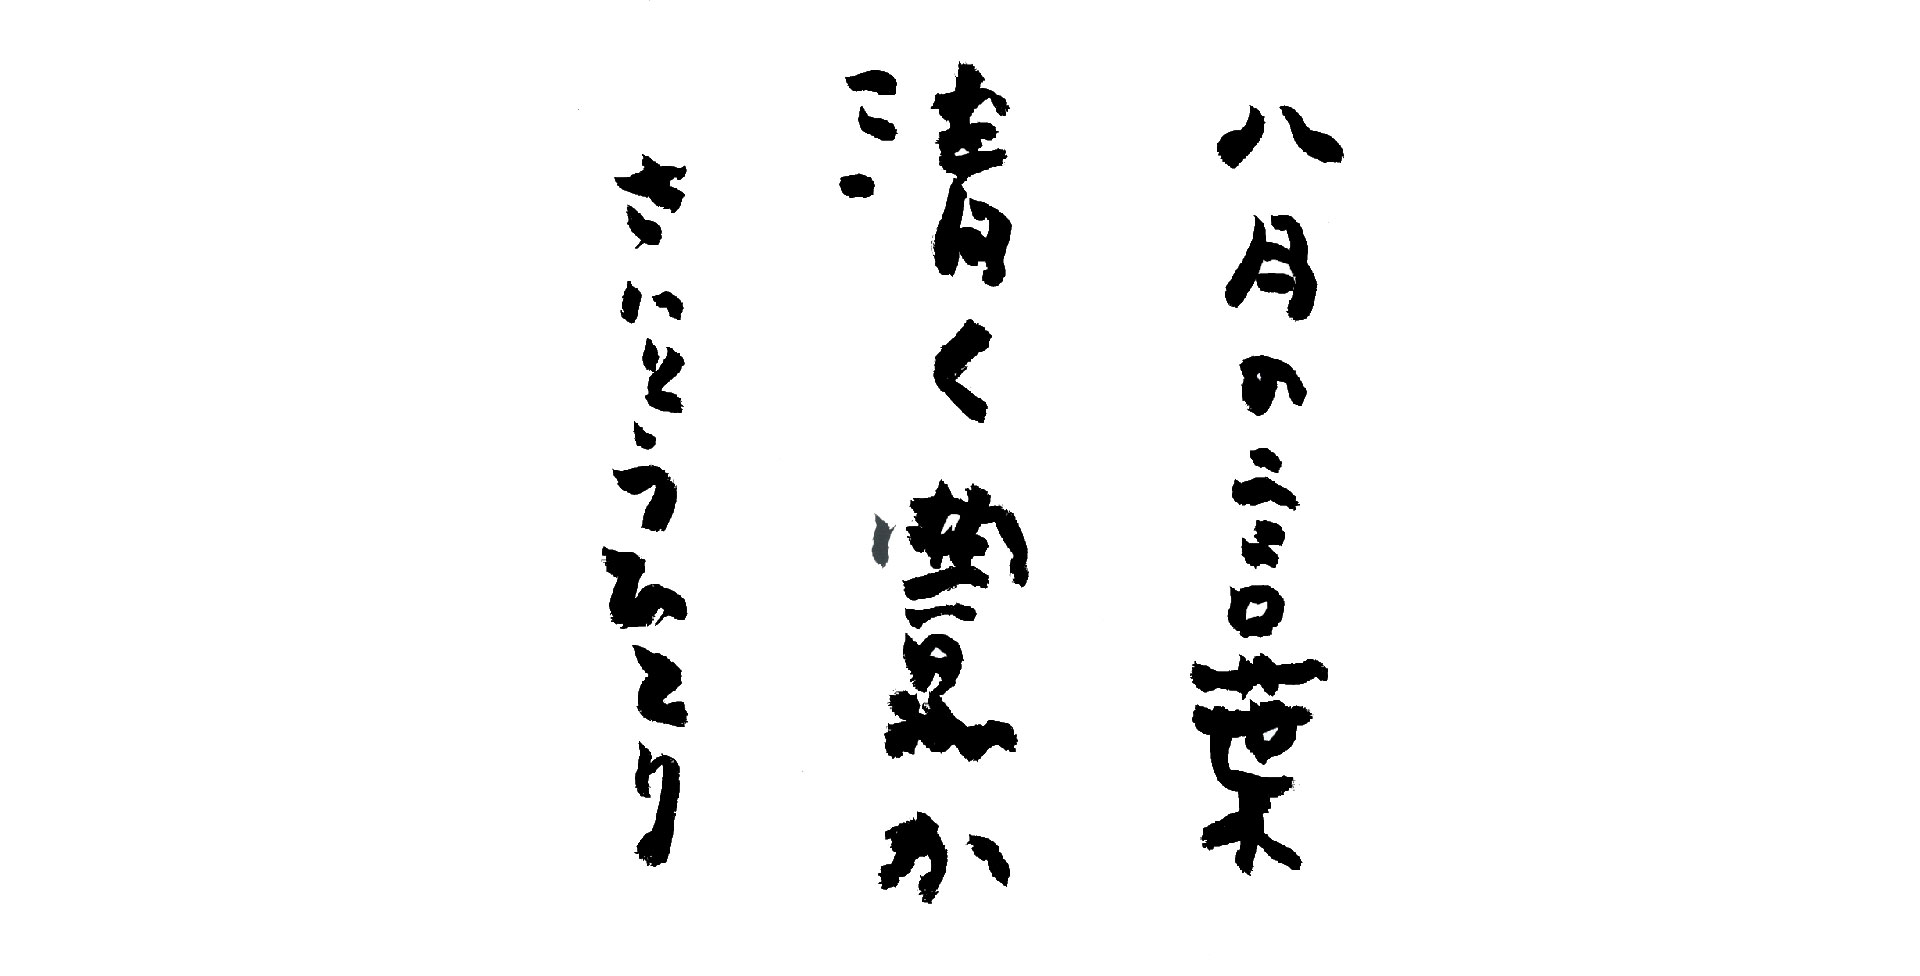 八月の言葉
清く か
さいとうひとり